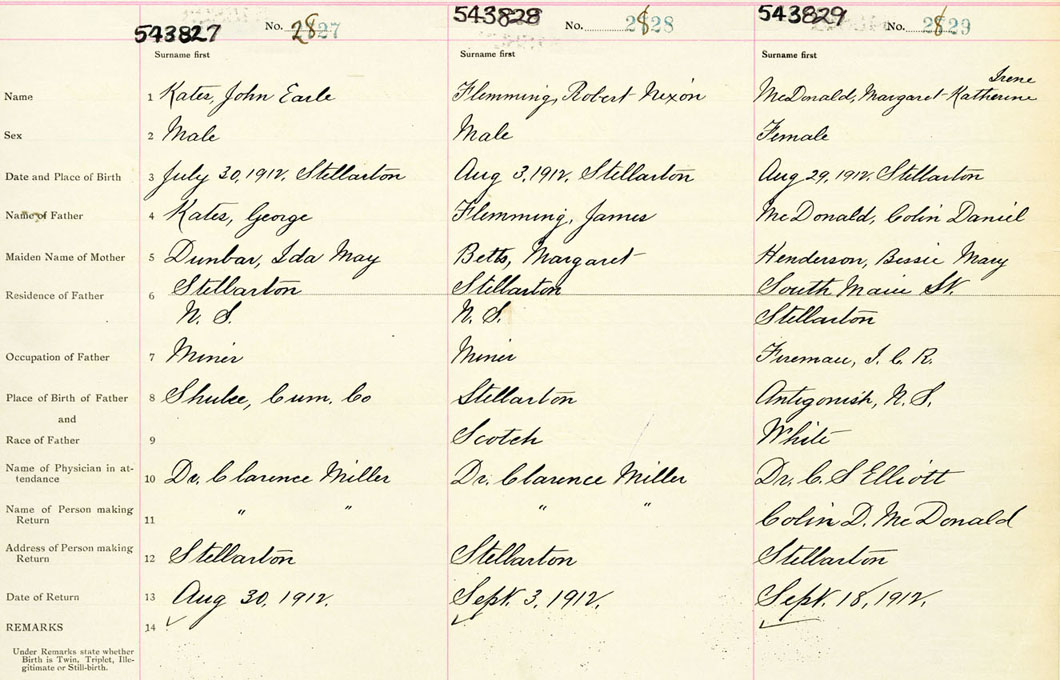 543827 No. 2827 543828 No. 2828 543829 No. 2829
Surname first Surname first Surname first
Irene
Name 1 Kates, John Earle Flemming, Robert Nixon McDonald, Margaret Katherine
Sex 2 Male Male Female
Date and Place of Birth 3 July 30, 1912, Stellarton Aug 3, 1912, Stellarton Aug 29, 1912, Stellarton
Name of Father 4 Kates, George Flemming, James McDonald, Colin Daniel
Maiden Name of Mother 5 Dunbar, Ida May Betts, Margaret Henderson, Bessie Mary
Residence of Father 6 Stellarton Stellarton South Main St.
N. S. N. S. Stellarton
Occupation of Father 7 Miner Miner Fireman, I. C. R.
Place of Birth of Father 8 Shulee, Cum. Co Stellarton Antigonish, N. S.
and
Race of Father 9 Scotch White
Name of Physician in at-
tendance 10 Dr. Clarence Miller Dr. Clarence Miller Dr. C. S Elliott
Name of Person making
Return 11 " " " " Colin D. McDonald
Address of Person making
Return 12 Stellarton Stellarton Stellarton
Date of Return 13 Aug 30, 1912. Sept. 3, 1912. Sept. 18, 1912.
REMARKS 14
Under Remarks state whether
Birth is Twin, Triplet, Ille-
gitimate or Still-birth.